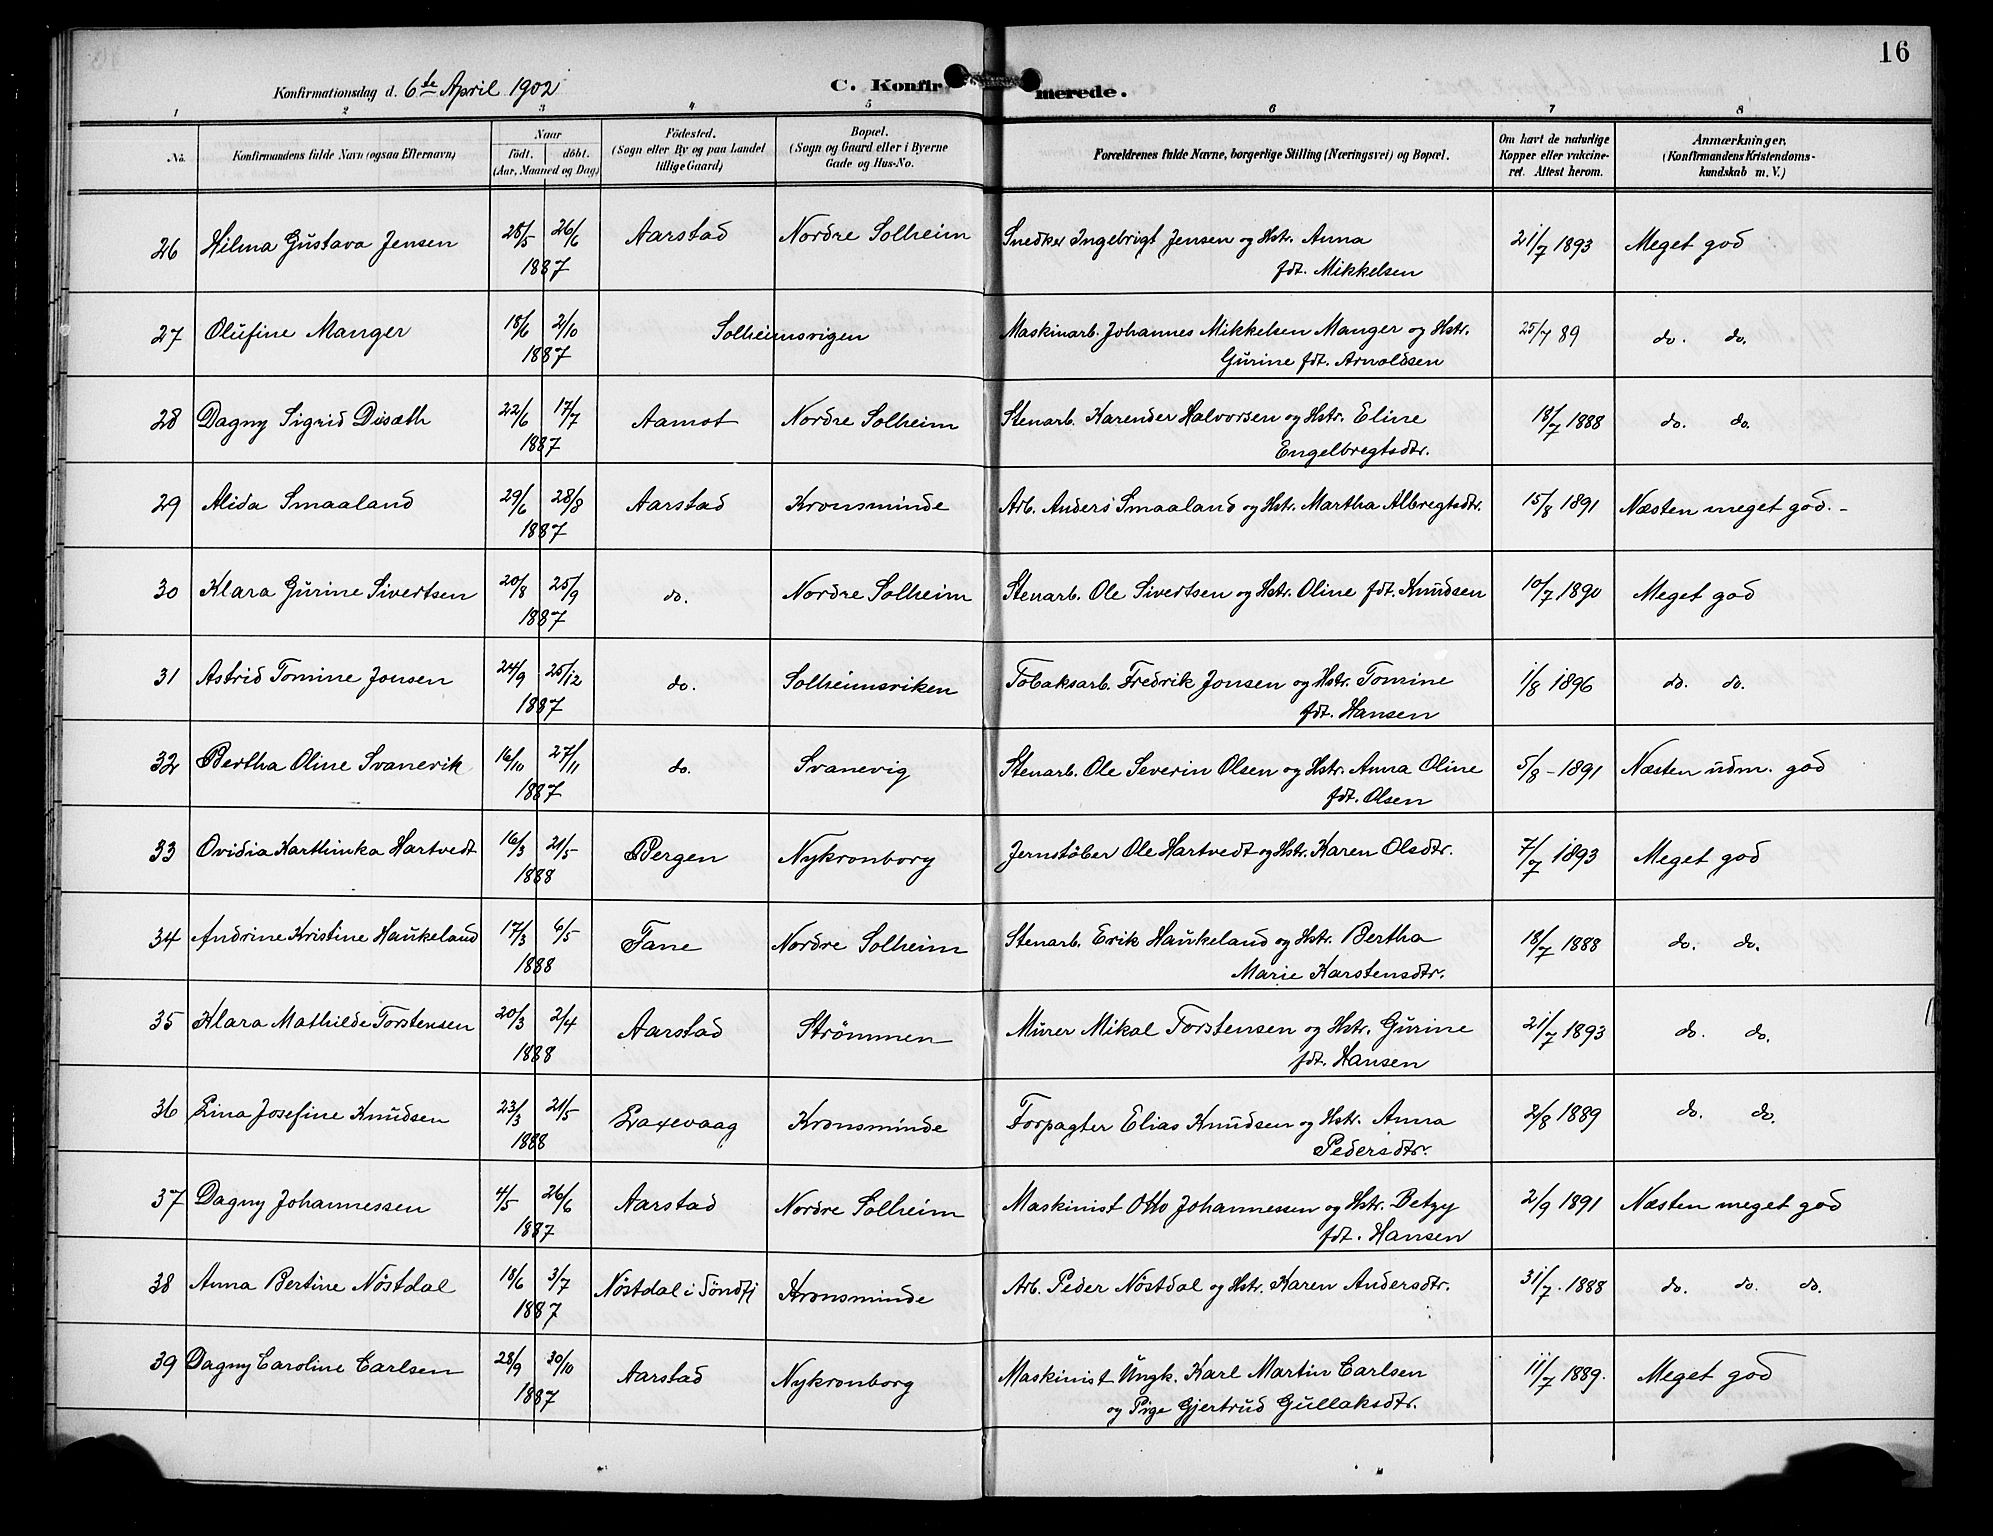 16
Konfirmationsdag d. 6te April 1902
C. Konfirmerede.
1 2 3 4 5 6 7 8
No. Konfirmandens fulde Navn (ogsaa Efternavn) Naar födt. döbt. (Aar, Maaned og Dag) Födested. (Sogn eller By og paa Landet tillige Gaard) Bopæl. (Sogn og Gaard eller i Byerne Gade og Hus-No. Forældrenes fulde Navne, borgerlige Stilling (Næringsvei) og Bopæl. Om havt de naturlige Kopper eller vakcineret. Attest herom. Anmærkninger. (Konfirmandens Kristendomskundskab m. V.)
26 Hilma Gustava Jensen 28/5 26/6 Aarstad Nordre Solheim Snedker Ingebrigt Jensen og Hstr. Anna 21/7 1893 Meget god
1887 fdt. Mikkelsen
27 Olufine Manger 18/6 2/10 Solheimsvigen Maskinarb. Johannes Mikkelsen Manger og Hstr. 25/7 89 do. do.
1887 Gurine fdt. Arnoldsen
28 Dagny Sigrid Disæth 22/6 17/7 Aamot Nordre Solheim Stenarb. Karender Halvorsen og Hstr. Eline 18/7 1888 do. do.
1887 Engelbregtsdtr.
29 Alida Smaaland 29/6 28/8 Aarstad Kronsminde Arb. Anders Smaaland og Hstr. Martha Albregtsdtr. 15/8 1891 Næsten meget god. -
1887
30 Klara Gurine Sivertsen 20/8 25/9 do. Nordre Solheim Stenarb. Ole Sivertsen og Hstr. Oline fdt. Knudsen 10/7 1890 Meget god
1887
31 Astrid Tomine Jonsen 24/9 25/12 do. Solheimsviken Tobaksarb. Fredrik Jonsen og Hstr. Tomine 1/8 1896 do. do.
1887 fdt. Hansen
32 Bertha Oline Svanevik 16/10 27/11 do. Svanevig Stenarb. Ole Severin Olsen og Hstr. Anna Oline 5/8 - 1891 Næsten udm. god
1887 fdt. Olsen
33 Ovidia Karthinka Hartvedt 16/3 21/5 Bergen Nykronborg Jernstøber Ole Hartvedt og Hstr. Karen Olsdtr. 7/7 1893 Meget god
1888
34 Andrine Kristine Haukeland 17/3 6/5 Fane Nordre Solheim Stenarb. Erik Haukeland og Hstr. Bertha 18/7 1888 do. do.
1888 Marie Karstensdtr.
35 Klara Mathilde Torstensen 20/3 2/4 Aarstad Strömmen Murer Mikal Torstensen og Hstr. Gurine 21/7 1893 do. do.
1888 fdt. Hansen
36 Lina Josefine Knudsen 23/3 21/5 Laxevaag Kronsminde Forpagter Elias Knudsen og Hstr. Anna 2/8 1889 do. do.
1888 Pedersdtr.
37 Dagny Johannessen 4/5 26/6 Aarstad Nordre Solheim Maskinist Otto Johannessen og Hstr. Betzy 2/9 1891 Næsten meget god
1887 fdt. Hansen
38 Anna Bertine Nøstdal 18/6 3/7 Nøstdal i Söndfj Kronsminde Arb. Peder Nøstdal og Hstr. Karen Andersdtr. 31/7. 1888 do. do. do.
1887
39 Dagny Caroline Carlsen 28/9 30/10 Aarstad Nykronborg Maskinist Ungk. Karl Martin Carlsen 11/7 1889. Meget god
1887 og Pige Gjertrud Gullaksdtr.